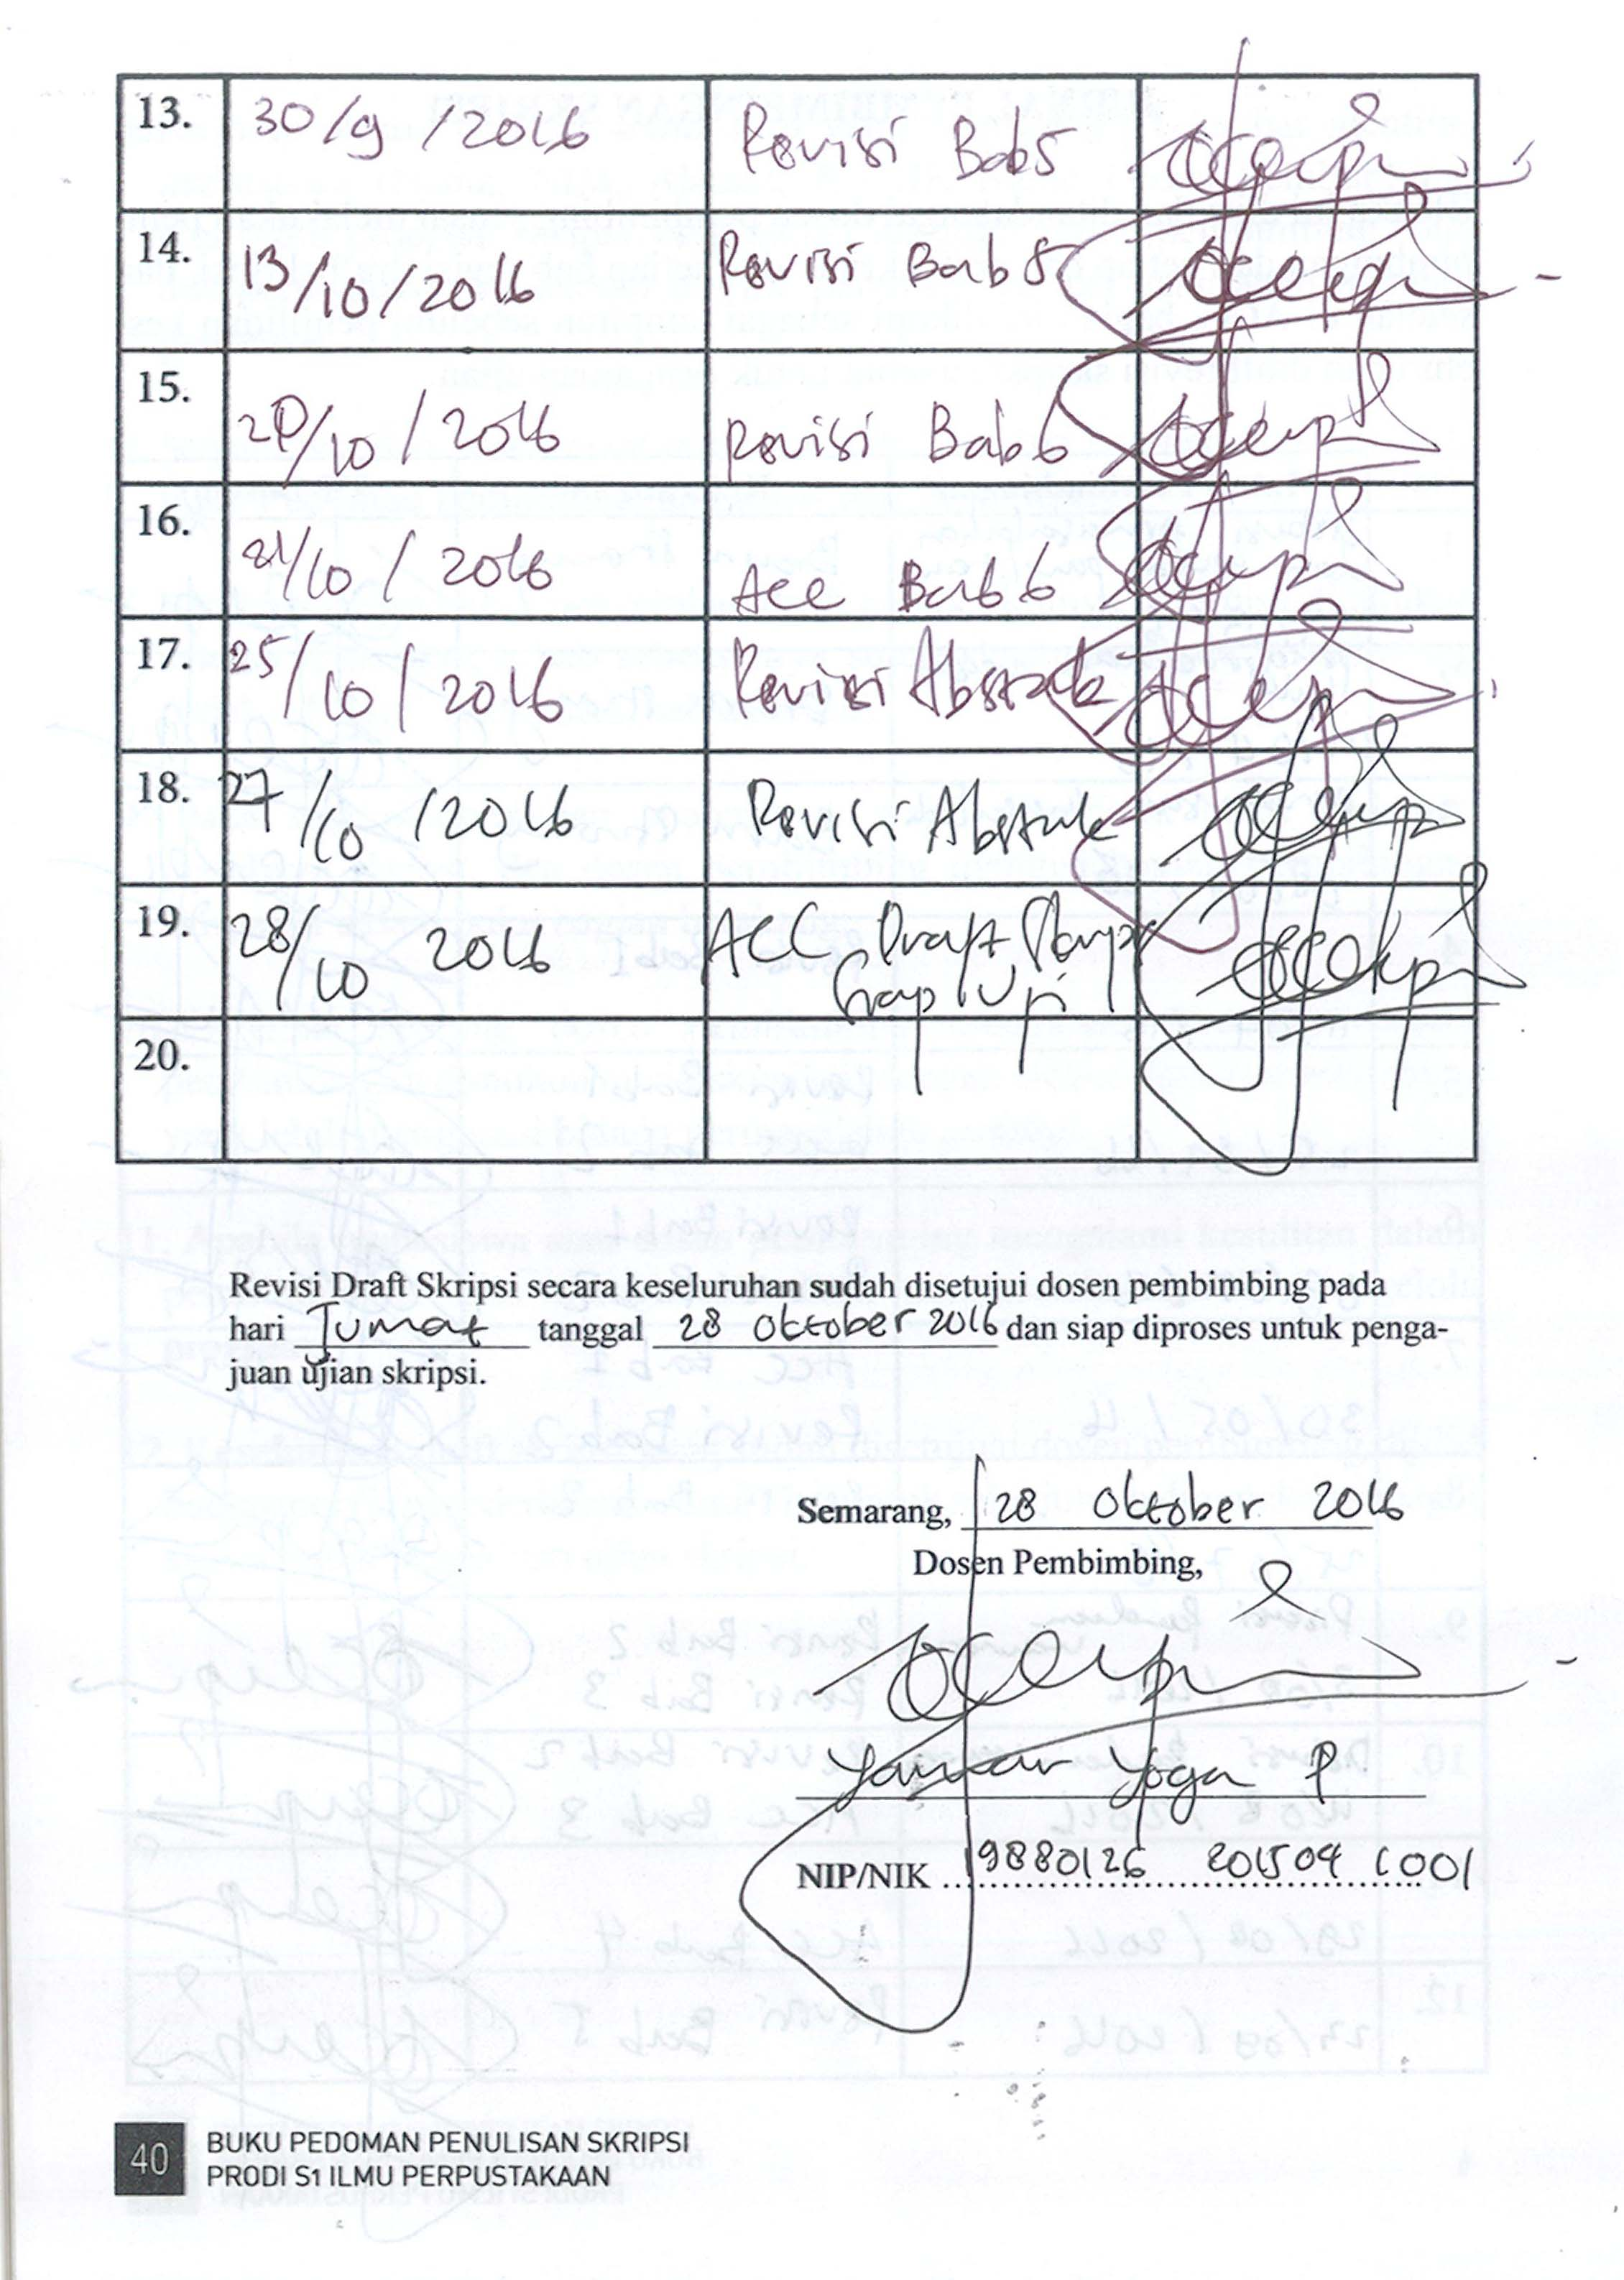 13. 30/9/2016 Revisi Bab 5
14. 13/10/2016 Revisi Bab 5
15. 20/10/2016 Revisi Bab 6
16. 21/10/2016 Acc Bab 6
17. 25/10/2016 Revisi Abstrak
18. 27/10/2016 Revisi Abstrak
19. 28/10 2016 ACC Draft
Siap Uji
20.
Revisi Draft Skripsi secara keseluruhan sudah disetujui dosen pembimbing pada
hari Jumat tanggal 28 Oktober 2016 dan siap diproses untuk penga-
juan ujian skripsi.
Semarang, 28 Oktober 2016
Dosen Pembimbing,
Yanuar Yoga P
NIP/NIK 19880126 201504 1 001
40
BUKU PEDOMAN PENULISAN SKRIPSI
PRODI S1 ILMU PERPUSTAKAAN